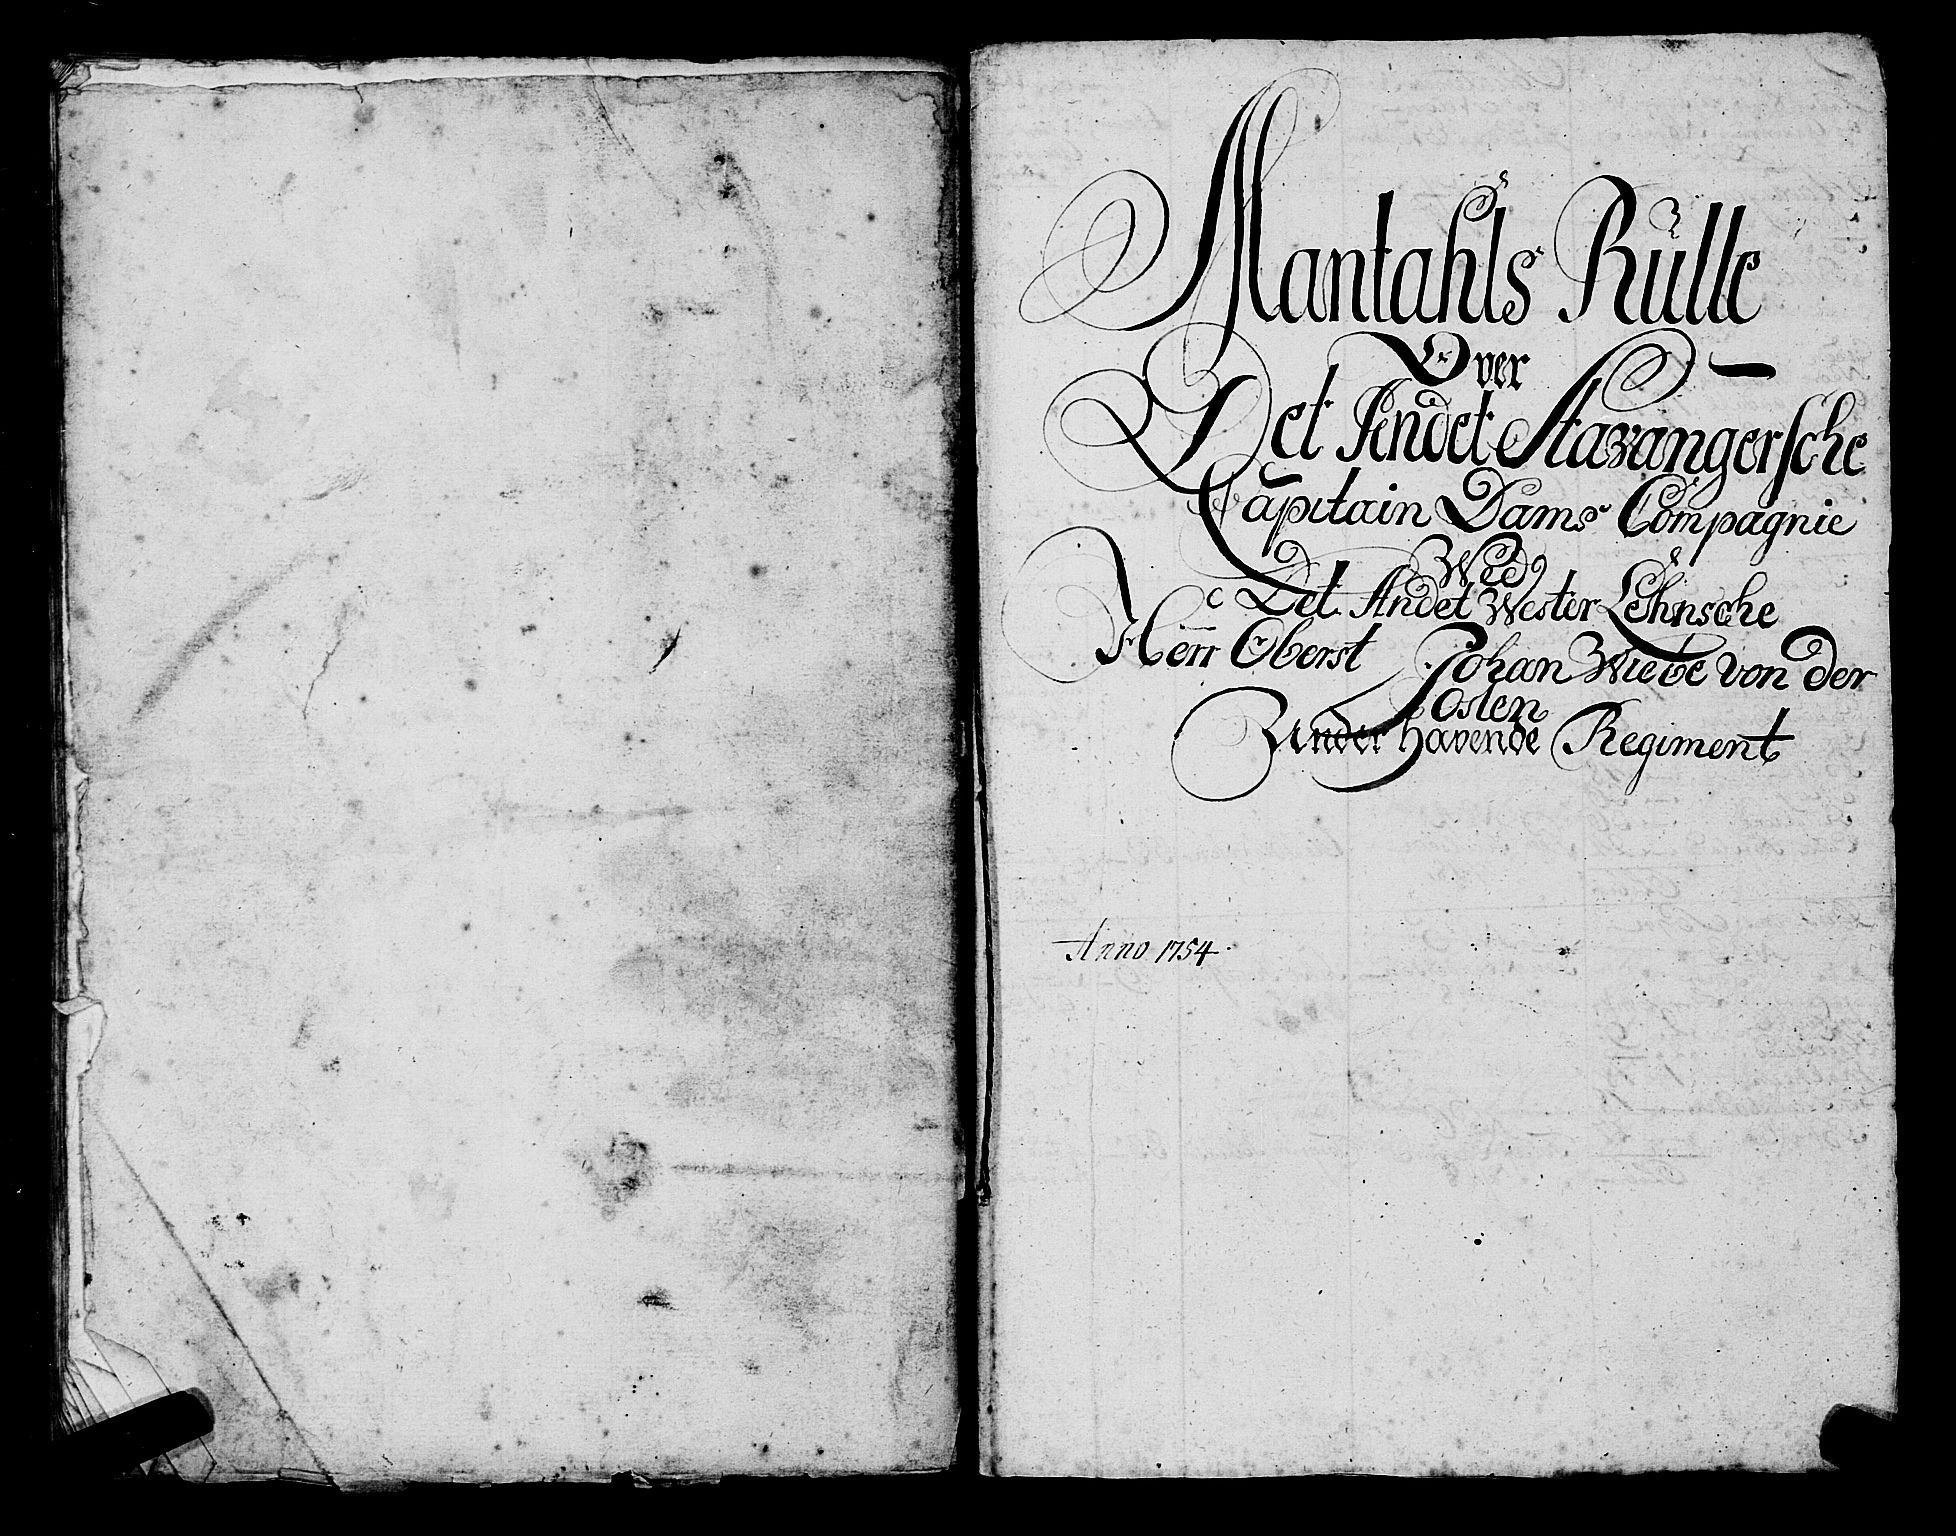 Mantahls Rulle
Over
Det Andet Stavangersche
Capitain Dams Compagnie
Wed
Det Andet Wester Lehnsche
Herr Oberst Johan Wiebe von der
Osten
Under havende Regiment
Anno 1754